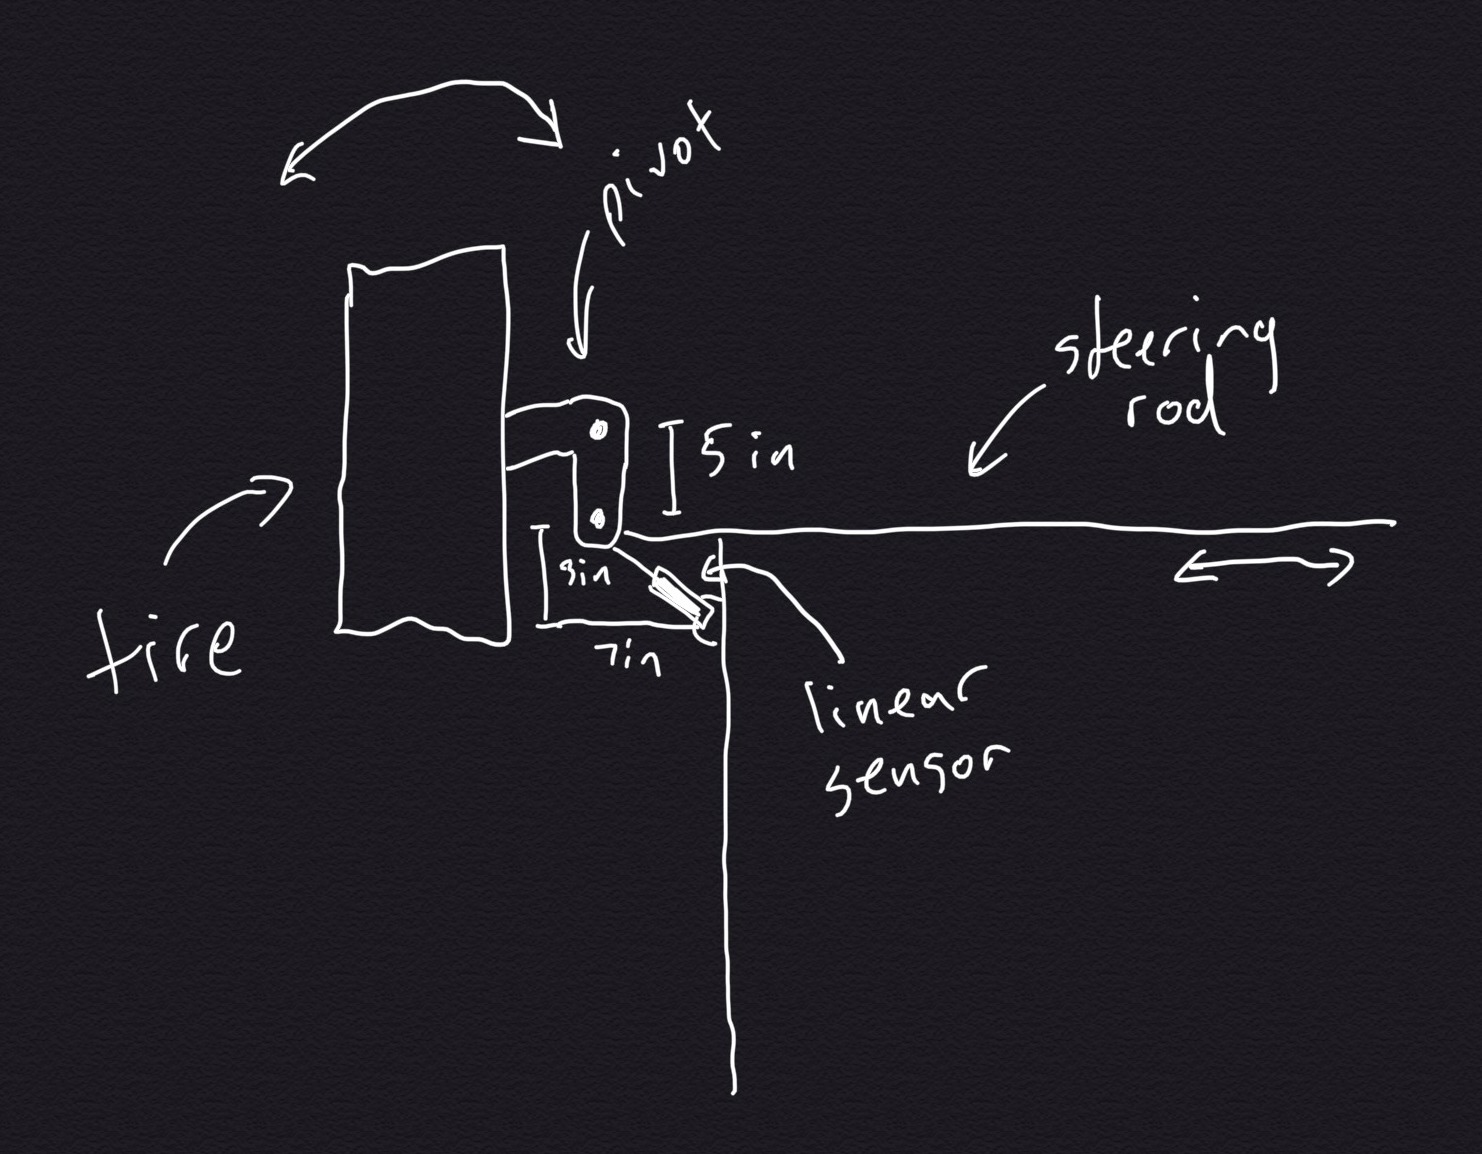 pivot
steering
rod
5 in
3in
7in
tire
linear
sensor